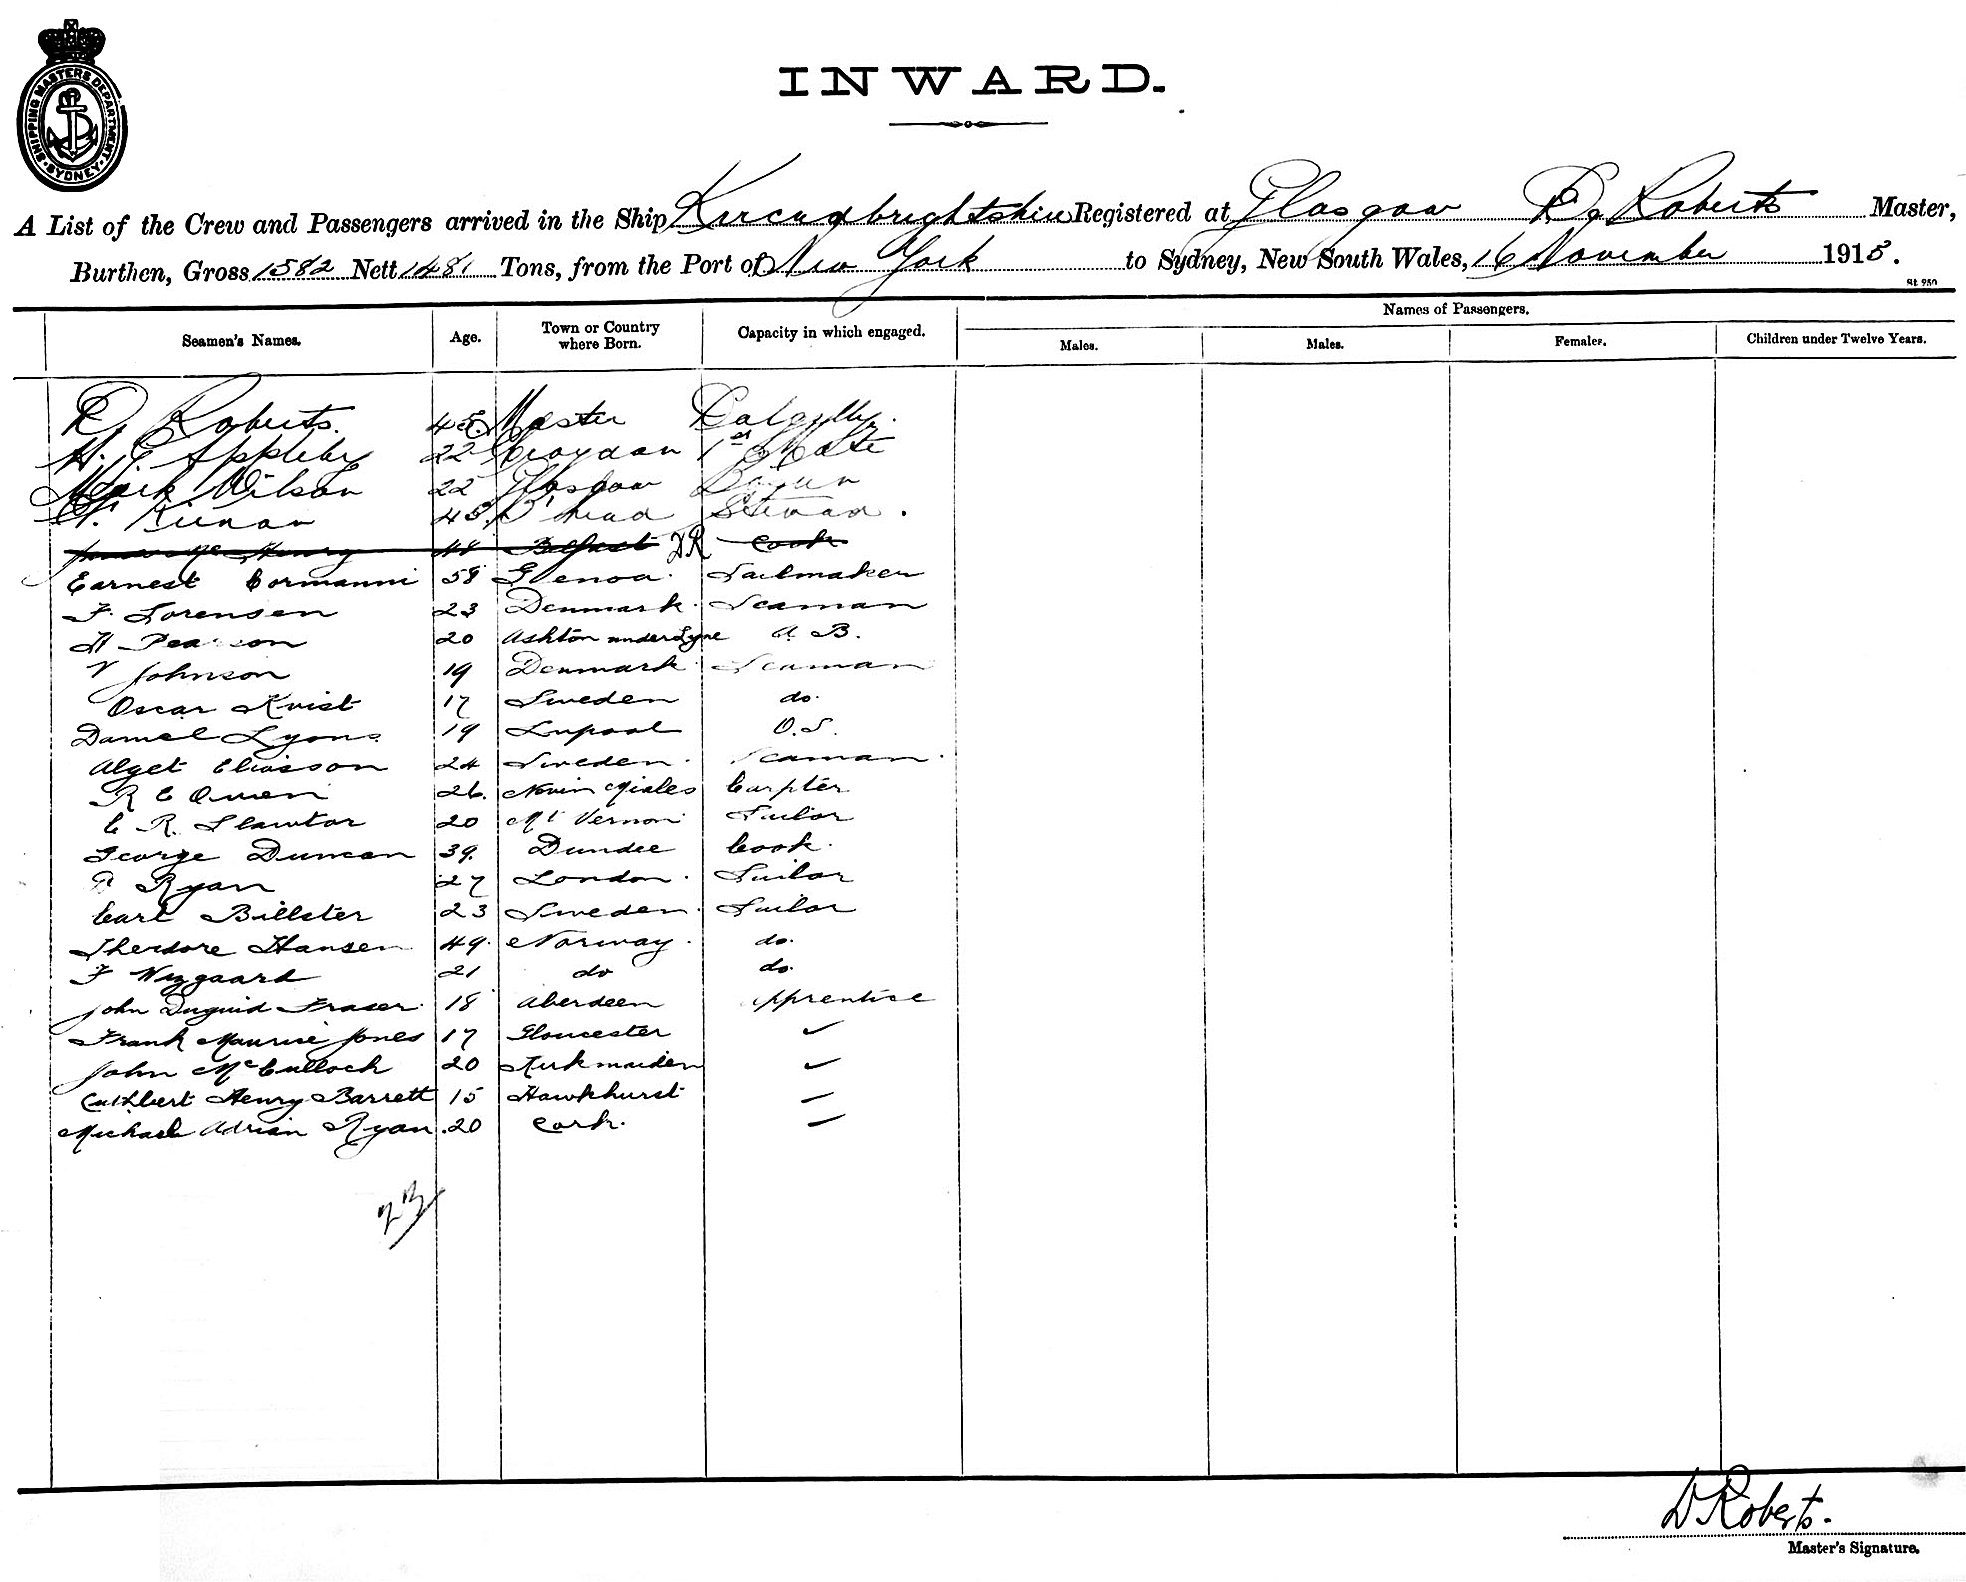 SHIPPING MASTERS DEPARTMENT · SYDNEY ·
INWARD.
A List of the Crew and Passengers arrived in the Ship Kircudbrightshire Registered at Glasgow D. Roberts Master,
Burthen, Gross 1582 Nett 1481 Tons, from the Port of New York to Sydney, New South Wales, 16 November 1915.
St 950
Seamen's Names. Age. Town or Country where Born. Capacity in which engaged. Names of Passengers.
Males. Males. Females. Children under Twelve Years.
D. Roberts. 45 Master Dolgelly.
H. E. Appleby 22 Croydon 1st Mate
Mark Wilson 22 Glasgow
Kiernan 45 B'head Steward.
Henry 48 Belfast DR Cook
Earnest Cormanni 58 Genoa. Sailmaker
F. Sorensen 23 Denmark. Seaman
H Pearson 20 Ashton under Lyne A. B.
V Johnson 19 Denmark Seaman
Oscar Kvist 17 Sweden do.
Daniel Lyons 19 Lupool O.S.
Algot Eliasson 24 Sweden. Seaman.
R E Owen 26. Nevin Wales Carpter
C R. Slawtor 20 Mt Vernon Sailor
George Duncan 39. Dundee Cook.
Ryan 27 London. Sailor
Carl Billster 23 Sweden. Sailor
Theodore Hansen 49. Norway. do.
F Nygaard 21 do do.
John Duguid Fraser. 18 Aberdeen Apprentice
Frank Maurice Jones 17 Gloucester ✓
John McCulloch 20 Kirkmaiden ✓
Cuthbert Henry Barrett 15 Hawkhurst —
Michael Adrian Ryan. 20 Cork. —
23
D Roberts.
Master's Signature.